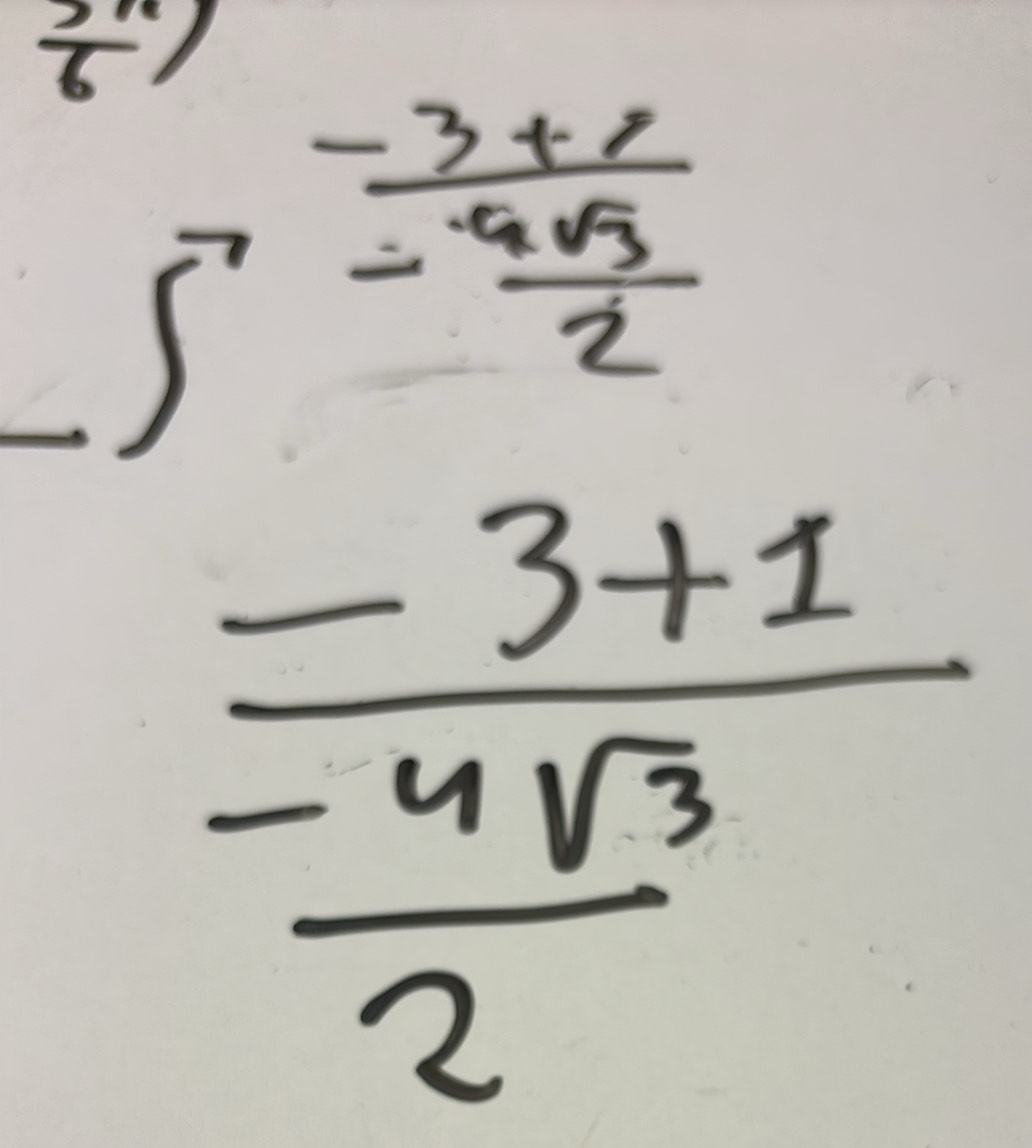 6 )
- 3 + 1
- 4 √3
2
- 3 + 1
- 4 √3
2